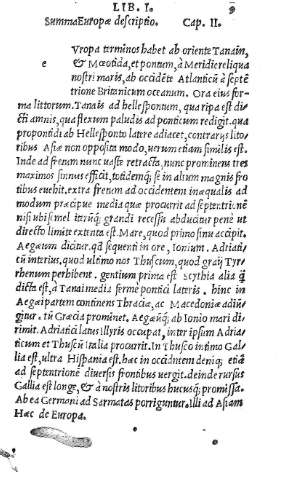 LIB. I. 9
Summa Europæ descriptio. Cap. II.
e
Vropa terminos habet ab oriente Tanaim,
& Mæotida, et pontum, à Meridie reliqua
nostri maris, ab occidēte Atlanticū à septē
trione Britanicum oceanum. Ora eius for-
ma littorum. Tanais ad hellespontum, qua ripa est di
cti amnis, qua flexum paludis ad ponticum redigit. qua
propontidi ab Hellesponto latere adiacet, contrarijs lito
ribus Asiæ non opposita modo, uerum etiam similis est.
Inde ad frenum nunc uaste retracta, nunc prominens tres
maximos sinnus efficit, totidemq; se in altum magnis fro
tibus euehit. extra fretum ad occidentem inæqualis ad
modum præcipue media quæ procurrit ad septentrionē
nisi ubi simel iterūq; grandi recessu abducitur penè ut
directo limite extenta est. Mare, quod primo sinu accipit.
Aegæum dicitur. qd sequenti in ore, Ionium. Adriati-
cū interius, quod ultimo nos Thuscum, quod graij Tyr
rhenum perhibent. gentium prima est Scythia alia q̃
dicta est, à Tanai media fermè pontici lateris. hinc in
Aegæi partem continens Thracia, ac Macedoniæ adiū
gitur. tū Græcia prominet. Aegæūq; ab Ionio mari di
rimit. Adriatici latus Illyris occupat, inter ipsum Adria
ticum et Thuscū Italia procurrit. In Thusco intimo Gal
lia est, ultra Hispania est. hæc in occidētem deniq; etiā
ad septentrionē diuersis frontibus uergit. deinde rursus
Gallia est longe, & à nostris litoribus hucusq; promissa.
Ab ea Germani ad Sarmatas porriguntur. Illi ad Asiam
Hæc de Europa.